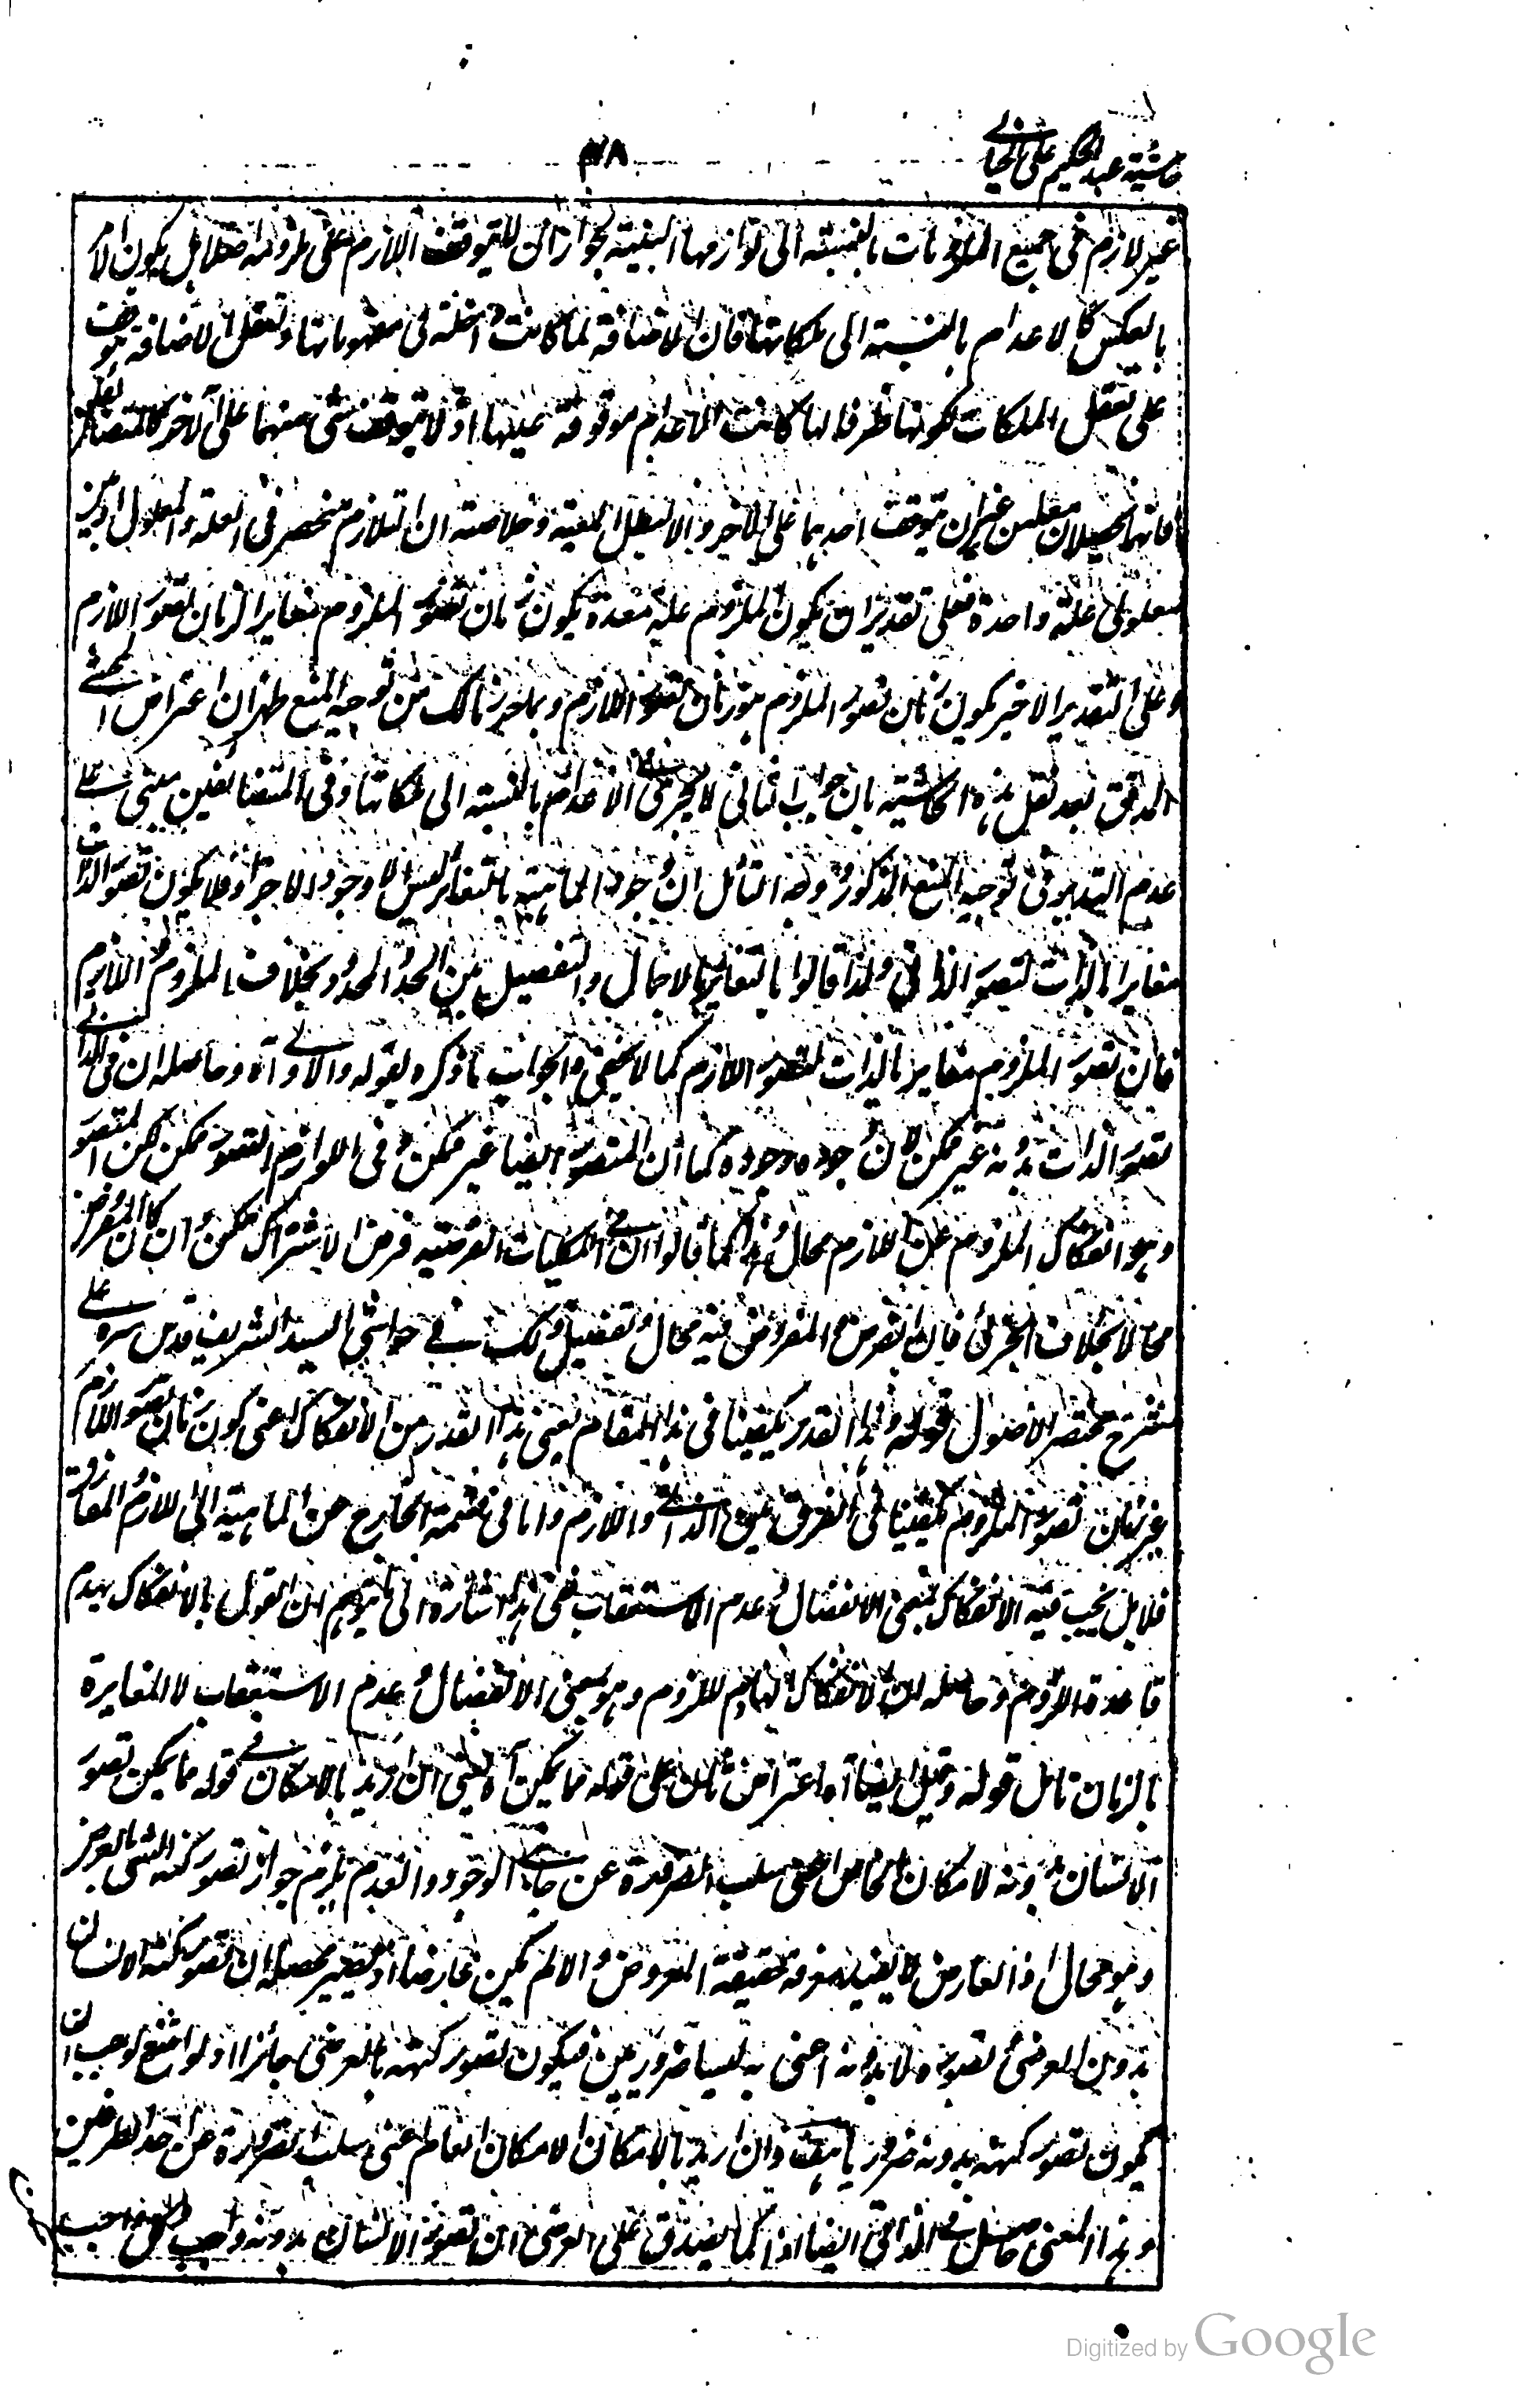 حاشية عبد الحكيم على الخيالي
٣٨
غير لازم في جميع الملزومات بالنسبة الى لوازمها البينة لجواز ان لا يتوقف اللازم على ملزومه اصلا بل يكون الامر
بالعكس كالاعدام بالنسبة الى ملكاتها فان الاضافة لما كانت داخلة في مفهوماتها وتعقل الاضافة موقوف
على تعقل الملكات لكونها طرفا لها كانت الاعدام موقوفة عليها او لا يتوقف شئ منهما على الآخر كالمتضائفين
فانهما يحصلان معا من غير ان يتوقف احدهما على الآخر والا لبطل المعية وخلاصته ان التلازم منحصر في العلة والمعلول او بين
معلولي علة واحدة فعلى تقدير ان يكون الملزوم علة معدة يكون زمان تصور الملزوم مغايرا لزمان تصور اللازم
وعلى التقدير الاخير يكون زمان تصور الملزوم هو زمان تصور اللازم وبما حررنا لك من توجيه المنع ظهر ان اعتراض المحشي
المدقق بعد نقل هذه الحاشية بان جواب الثاني لا يجري في الاعدام بالنسبة الى ملكاتها وفي المتضائفين مبني على
عدم التدبر في توجيه المنع المذكور وجه التأمل ان وجود الماهية بالتغاير ليس الا وجود الاجزاء فلا يكون تصور الذات
مغايرا بالذات لتصور الذاتي ولذا قالوا بالتغاير بالاجمال والتفصيل بين الحد والمحدود بخلاف الملزوم واللازم
فان تصور الملزوم مغاير بالذات لتصور اللازم كما لا يخفى والجواب ما ذكره بقوله والاولى آه وحاصله ان في الذاتي
تصور الذات بدونه غير ممكن لان وجوده وجوده كما ان المتصور ايضا غير ممكن وفي اللوازم التصور ممكن لكن المتصور
وهو انفكاك الملزوم عن اللازم محال وهذا كما قالوا ان في الكليات الفرضية فرض الاشتراك ممكن وان كان المفروض
محالا بخلاف الجزئي فان الفرض والمفروض فيه محال وتفصيل ذلك في حواشي السيد الشريف قدس سره على
شرح مختصر الاصول قوله وهذا القدر يكفينا في هذا المقام يعني هذا القدر من الانفكاك اعني كون زمان تصور اللازم
غير زمان تصور الملزوم يكفينا في الفرق بين الذاتي واللازم واما في قسمة الخارج عن الماهية الى اللازم والمفارق
فلا بل يجب فيه الانفكاك بمعنى الانفصال وعدم الاستعقاب ففي هذا اشارة الى ما يتوهم ان القول بالانفكاك يهدم
قاعدة اللزوم وحاصله ان الانفكاك الهادم للزوم وهو بمعنى الانفصال وعدم الاستعقاب لا المغايرة
بالزمان تامل قوله وقيل ايضا آه اعتراض ثالث على قوله مما يمكن آه يعني ان اريد بالامكان في قوله مما يمكن تصور
الانسان بدونه الامكان الخاص اعني سلب الضرورة عن جانبي الوجود والعدم يلزم جواز تصور كنه الشئ بالعرضي
وهو محال اذ العارض لا يفيد معرفة حقيقة المعروض والا لم يكن عارضا اذ يصير محصله ان تصور كنه الانسان
بدون العرضي وتصوره لا بدونه اعني به ليسا ضروريين فيكون تصور كنهه بالعرضي جائزا اذ لو امتنع لوجب ان
يكون تصور كنهه بدونه ضروريا هف وان اريد بالامكان الامكان العام اعني سلب الضرورة عن احد الطرفين
وهذا المعنى حاصل في الذاتي ايضا اذ كما يصدق على العرضي ان تصور الانسان بدونه واجب
Digitized by Google